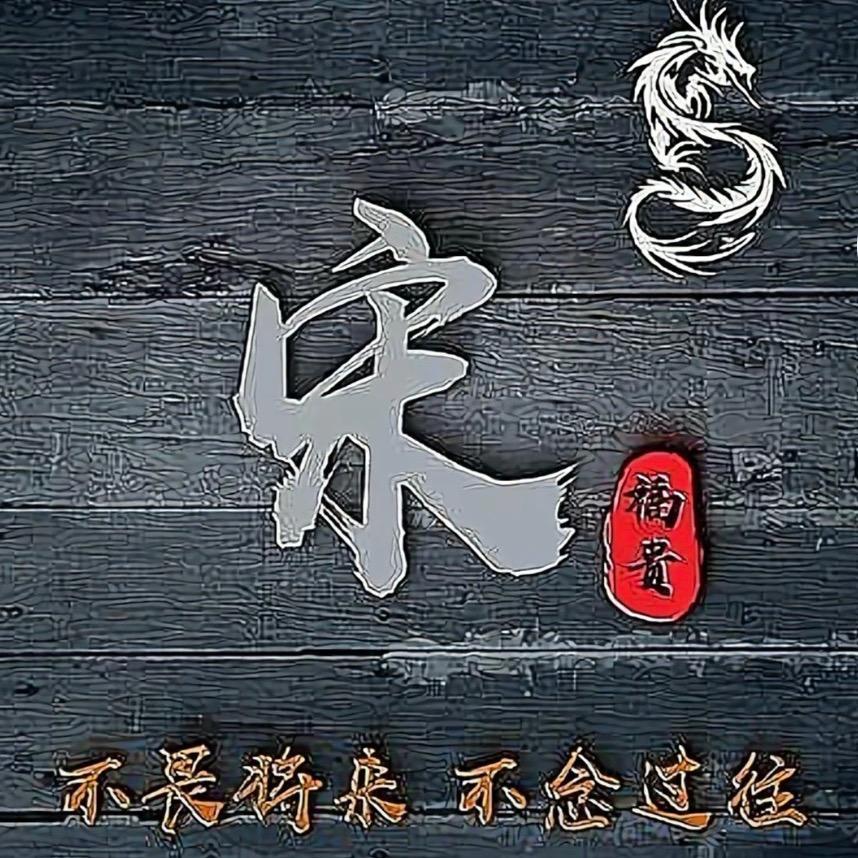 宋
福贵
不畏将来 不念过往